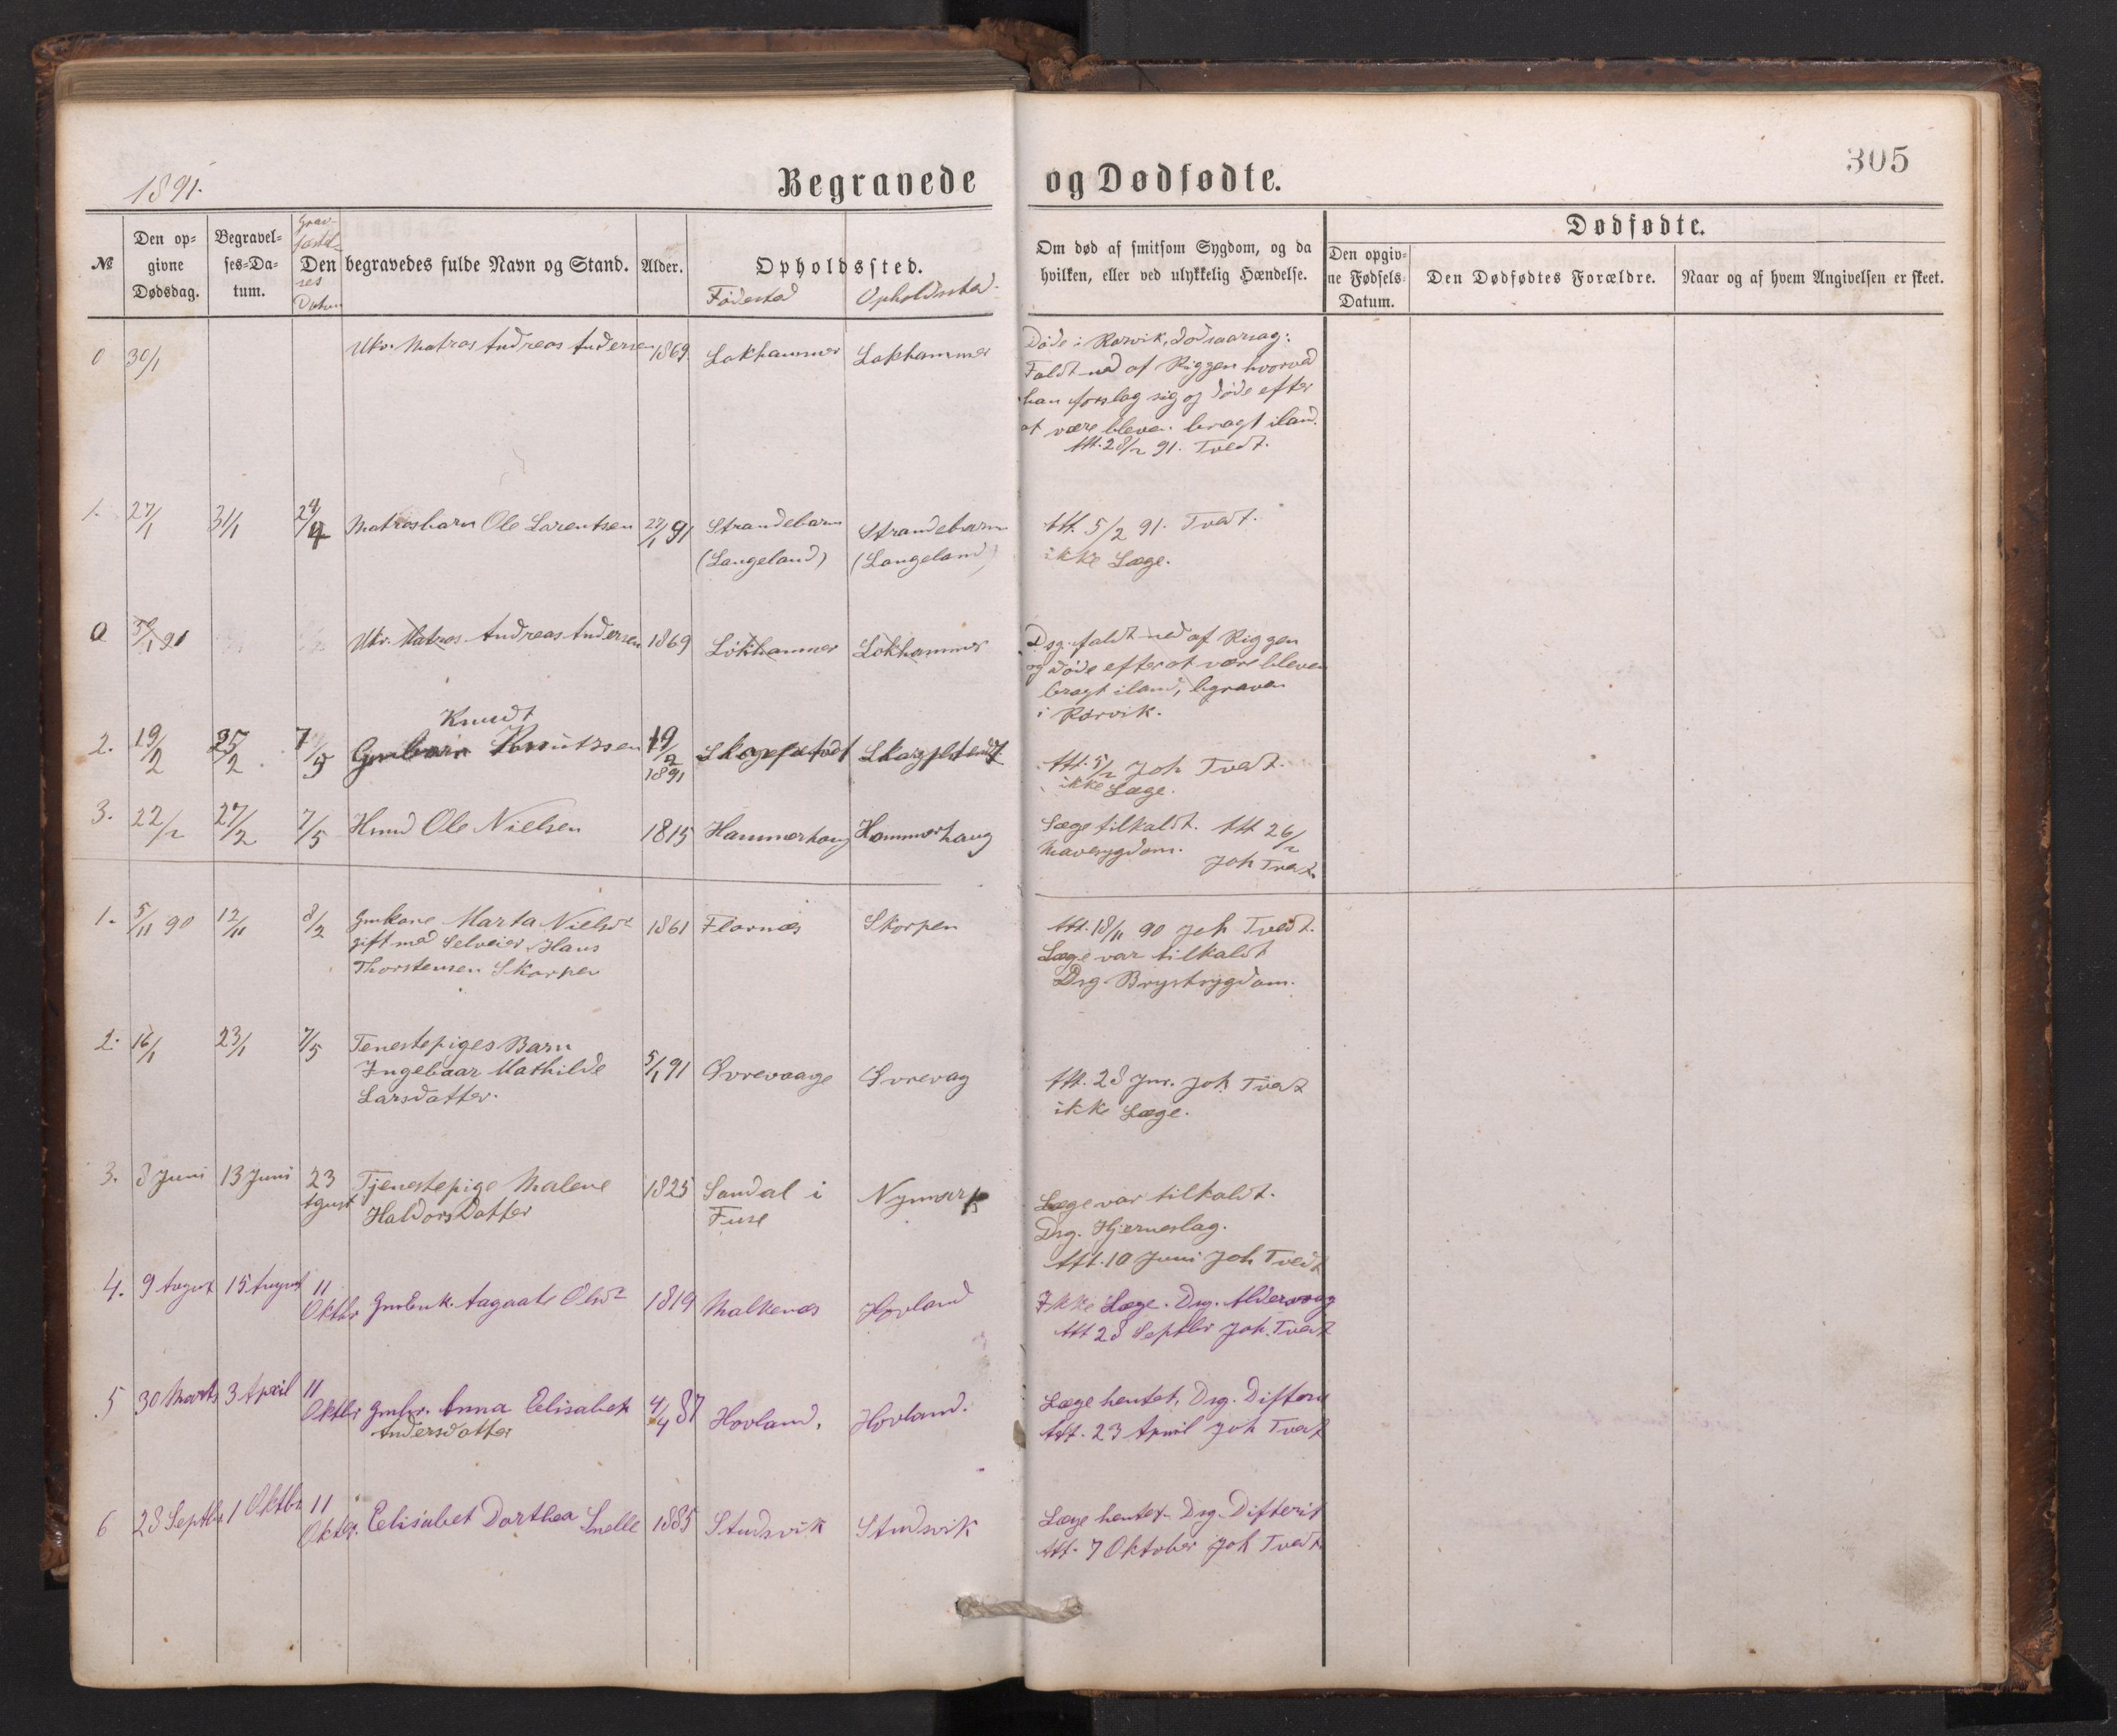 1891.
Begravede og Dødfødte.
305
№
Den opgivne Dødsdag.
Begravelses-Datum.
Den begravedes fulde Navn og Stand.
Alder.
Opholdssted.
Fødested
Opholdssted.
Om død af smitsom Sygdom, og da hvilken, eller ved ulykkelig Hændelse.
Dødfødte.
Den opgivne Fødsels-Datum.
Den Dødfødtes Forældre.
Naar og af hvem Angivelsen er skeet.
0 30/1 Ukr. Matros Andreas Andersen 1869. Lokhammer Lokhammer
Døde i Rørvik, Dødsaarsag:
Faldt ned af Riggen hvorved
han forslog sig og døde efter
at være bleven bragt iland.
Att. 28/2 91. Tvedt.
1. 27/1 31/1 24/4 Matrosbarn Ole Larentsen 27/1 91 Strandebarm Strandebarm
(Langeland) (Langeland)
Att. 5/2 91. Tvedt.
ikke Læge.
0 30/1 91 Ukr. Matros Andreas Andersen 1869 Lokhammer Lokhammer
Dsg. faldt ned af Riggen
og døde efter at være bleven
bragt iland, begraven
i Rørvik.
2. 19/2 25/2 7/5 Gmbarn Knudt Knutssen 19/2 1891
Att. 5/2 Joh Tvedt.
ikke Læge.
3. 22/2 27/2 7/5 Ole Nielsen 1815 Hammerhaug Hammerhaug
Læge tilkaldt. Att 26/2
Mavesygdom. Joh Tvedt.
1. 5/11 90 12/11 8/2 Gmkone Marta Nielsdr 1861 Flornes Skorpen
gift med Selveier Hans
Thorstensen Skorpen
Att. 18/11 90 Joh Tvedt.
Læge var tilkaldt
Dsg. Brystsygdom.
2. 16/1 23/1 7/5 Tenestepiges Barn
Ingebaar Mathilde
Larsdatter. 5/1 91 Øvrevaage Øvrevag
Att. 28 Jnr. Joh Tvedt
ikke Læge.
3. 8 Juni 13 Juni 23 Agust Tjenestepige Malene
Haldors Datter 1825 Sandal i
Fuse Nymark
Læge var tilkaldt.
Dsg. Hjerneslag.
Att. 10 Juni Joh Tvedt
4. 9 August 15 August 11 Oktbr Gmenk. Aagaate Olsdr 1819 Malkenes Hovland
Ikke Læge. Dsg.
Att 28 Septbr Joh. Tvedt
5 30 Marts 3 April 11 Oktbr Gmbr. Anna Elisabet
Andersdatter 4/4 87 Hovland, Hovland.
Læge hentet, Dsg. Difteri
Att. 23 April Joh Tvedt
6 28 Septbr 1 Oktbr 11 Oktbr. Elisabet Dorthea Snelle 1885 Studsvik Studsvik
Læge hentet Dsg. Difterit
Att. 7 Oktober Joh Tvedt.